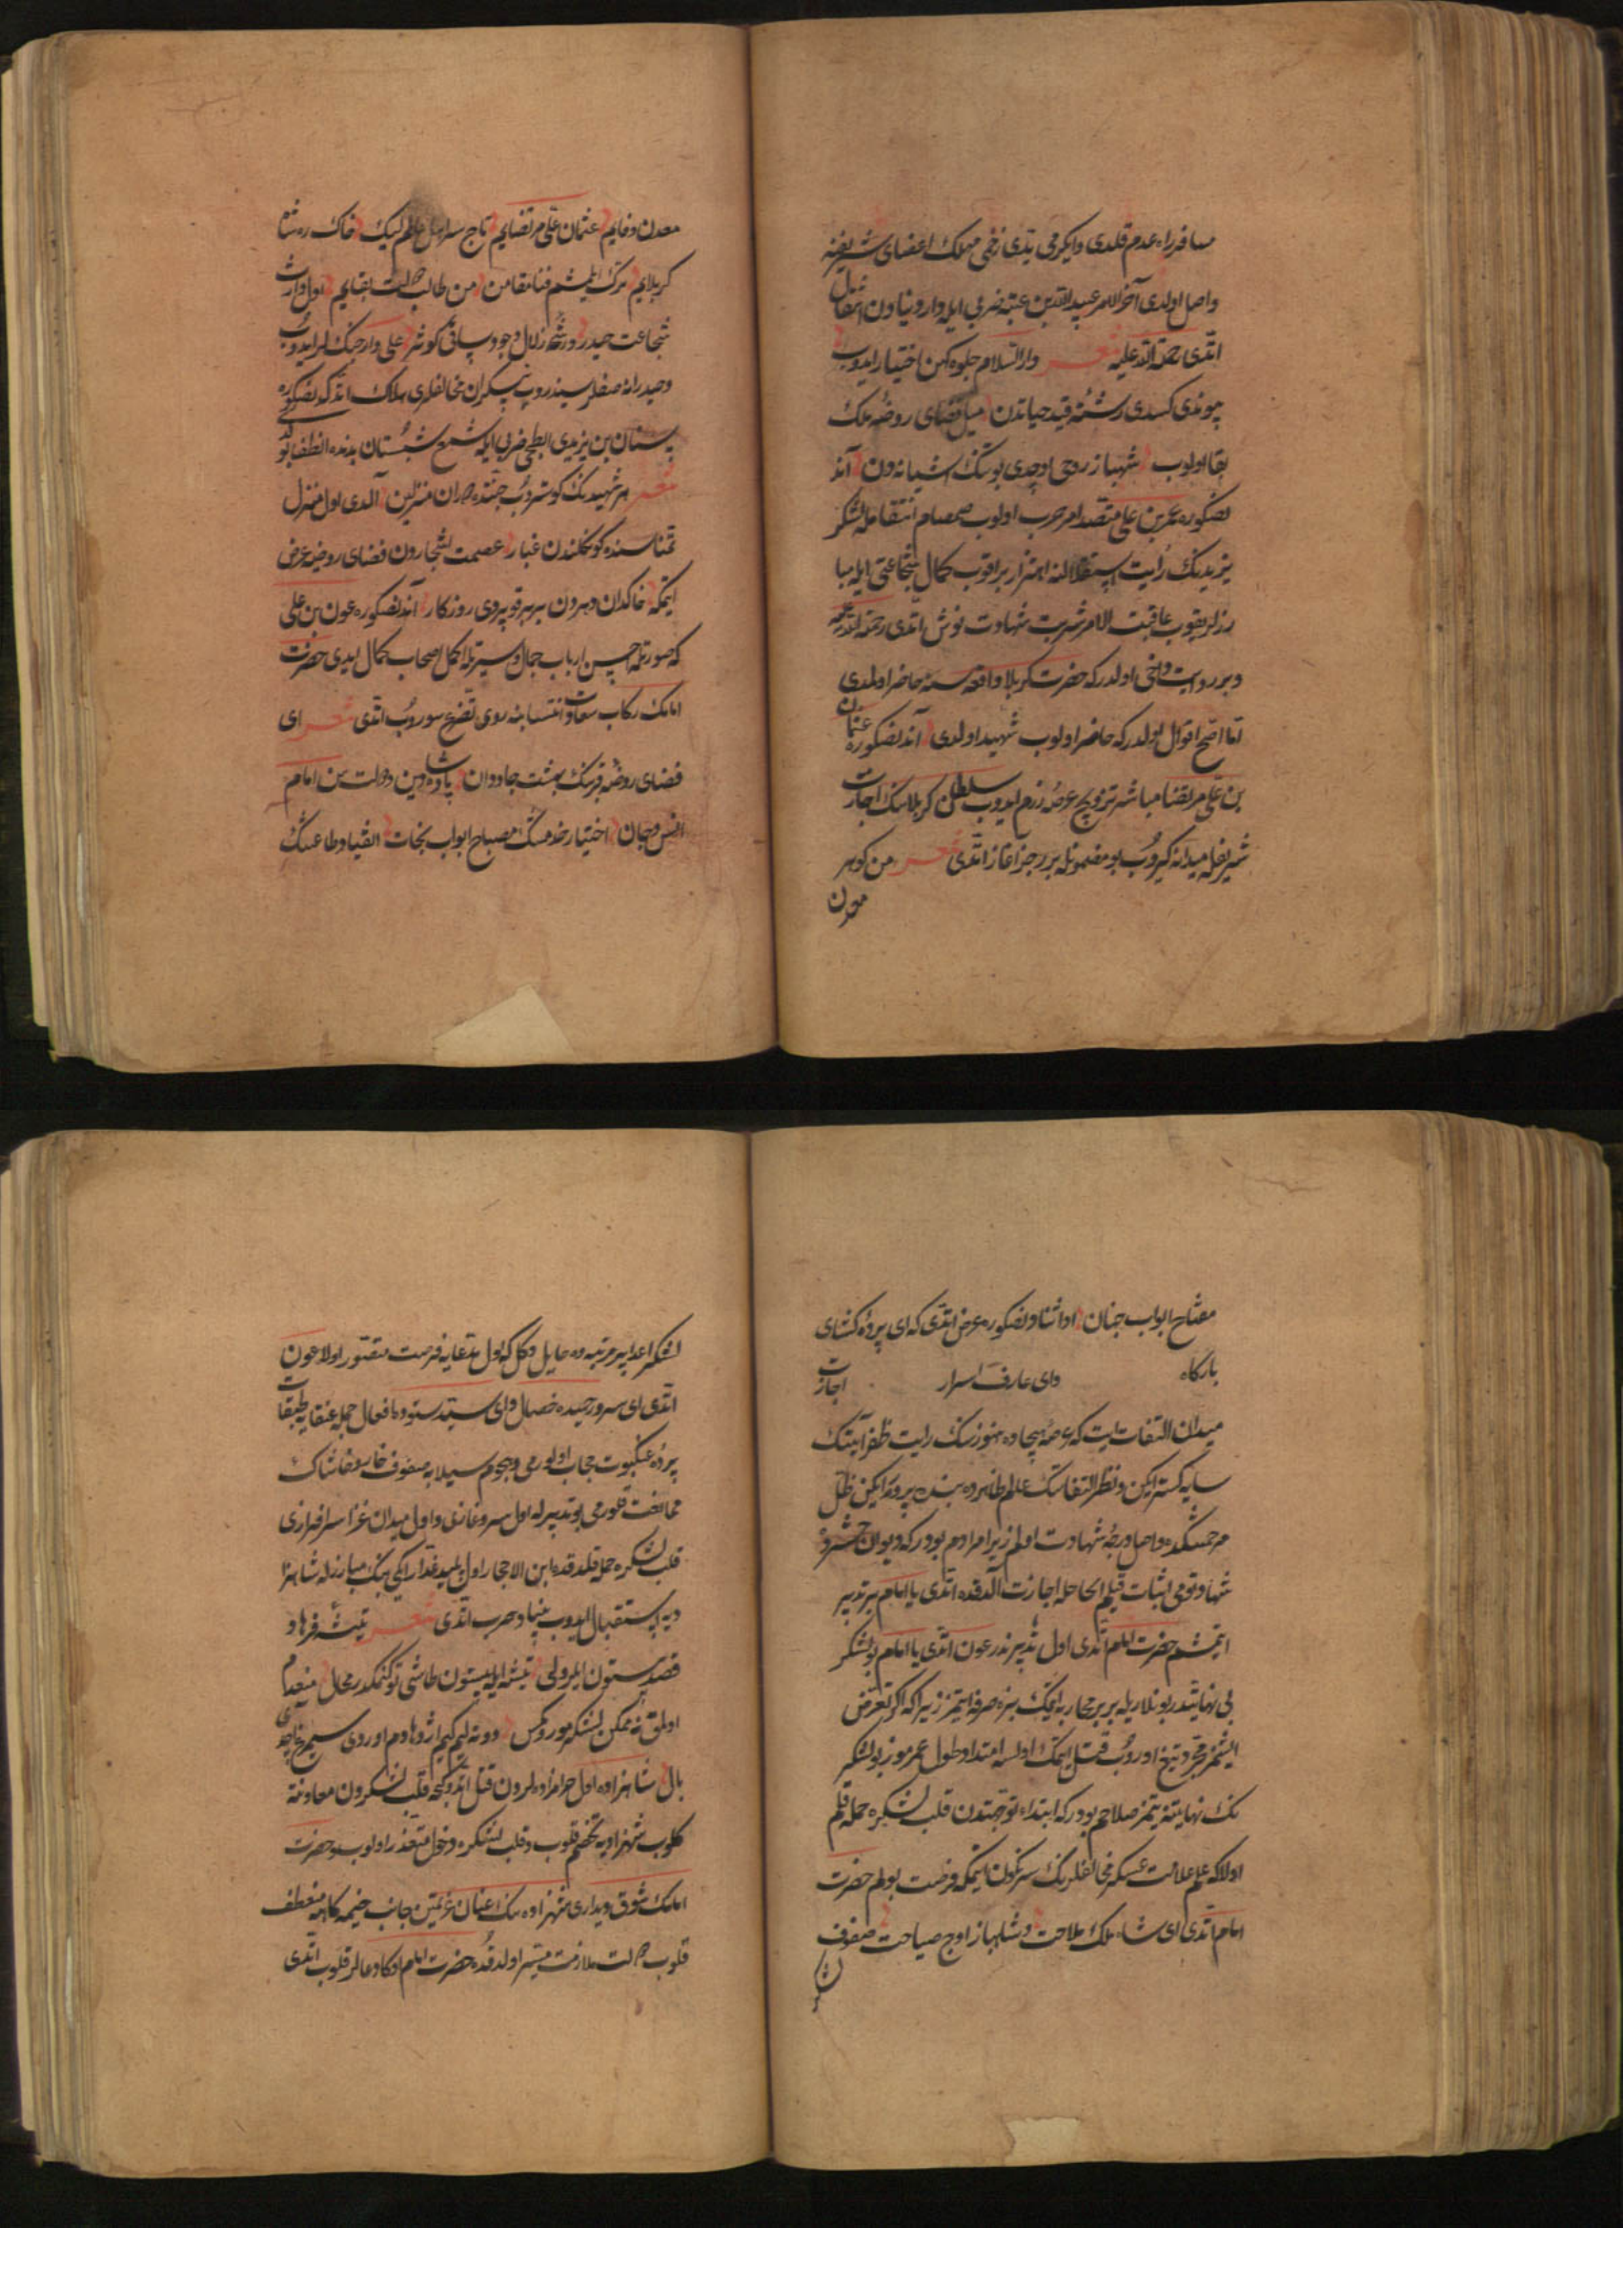 مسافر راه عدم قلدی و ایکرمی یتدی زخمی مهلک اعضای شریفنه
واصل اولدی آخر الامر عبید الله بن عتبه ضربی ایله دار دنیادن انتقال
اتدی رحمة الله علیه شعر دار السلام جلوه کهن اختیار ایدوب
چوندی کسدی رشتهٔ قید حیاتدن میل فضای روضهٔ ملک
بقا اولوب شهباز روحی اوچدی بو تنک اشیانه دن آند
نصکوره عمر بن علی متصدئ امر حرب اولوب صمصام انتقامله لشکر
یزیدنک رایت استقلالنه اهتزاز براقوب کمال شجاعتی ایله مبا
رزلر یقوب عاقبت الامر شربت شهادت نوش اتدی رحمة الله علیه
و بر روایت دخی اولدر که حضرت کربلا واقعه سنه حاضر اولمدی
اما اصح اقوال اولدر که حاضر اولوب شهید اولدی آندنصکوره عثمان
بن علی مرتضا مباشر ترویج عرصهٔ رزم ایدوب سلطان کربلانک اجازت
شریفله میدانه کیروب بو مضمونله بر رجز آغاز اتدی شعر من کوهر
معدن
معدن وفایم عثمان علی مرتضایم تاج سر اهل عالم لیک خاک ره شاه
کربلایم ترک ایلمشم فنا مقامن من طالب دولت بقایم اول وارث
شجاعت حیدر و رشحهٔ زلال وجود ساقی کوثر علی وار جنکلر ایدوب
و حیدرانه صفلر سیندروب بیکران مخالفلری هلاک اتدکدنصکوره
سنان بن یزیدی ابطحی ضربی ایله شمع شبستان بدنده انطفا بولدی
شعر هر شهیدنک کوستروب جنتده دوران منزلین آلدی اول منزل
تمناسنده کوکلندن غبار عصمت اشجاردن فضای روضه عرض
ایتمکه خاکدان دهردن بربر قوپردی روزکار آندنصکوره عون بن علی
که صورتله احسن ارباب جمال و سیرتله اکمل اصحاب کمال ایدی حضرت
امامک رکاب سعادت انتسابنه روی تضرع سوروب اتدی شعر ای
فضای روضهٔ قربنک بهشت جاودان پادشاه دین و دولت سن امام
انس و جان اختیار خدمتنک مصباح ابواب نجات انقیاد و طاعتنک
مفتاح ابواب جنان او اثنا دنصکوره عرض اتدی که ای پرده کشای
بارکاه وای عارف اسرار اجازت
میدان التفات ایت که عرصهٔ هیجاده هنوز سنک رایت ظفر آیتنک
سایه کستر ایکن و نظر التفاتنک عالم ظاهرده بنده پرور ایکن ظل
مرحمتکده واصل درجهٔ شهادت اولم زیرا مرادم بودر که دیوان حشرده
شهادتومی اثبات قیلم الحاصل اجازت آلدقده اتدی یا امام بر تدبیر
ایتمشم حضرت امام اتدی اول تدبیر ندر عون اتدی یا امام بو لشکر
بی نهایتدر بونلاریله بربر محاربه ایتمک بزه صرفه ایتمز زیرا که اکر تعرض
ایتمز محجر و تیغ اوروب قتل ایتمک اولسه امتداد طول عمرموز بو لشکر
نک نهایتنه یتمز صلاحم بودر که ابتداء توجهدن قلب لشکره حمله قلم
اولا که علم علامت عسکر مخالفلرینک سرنکون ایتمکه فرصت بولم حضرت
امام اتدی ای شاه ملک ملاحت و شاهباز اوج صباحت صفوف
لشکر
لشکر اعدا بر مرتبه ده حایل دکل که اول مدعایه فرصت متصور اولا عون
اتدی ای سرور حمیده خصال وای سید ستوده افعال حمله عنقایه طبقات
پردهٔ عنکبوت حجاب اولورمی و هجوم سیلابه صفوف خار و خاشاک
ممانعت قلورمی بو تدبیرله اول سرو غازی و اول میدان غزا سرفرازی
قلب لشکره حمله قلدقده ابن الاحجار اول پلید غدار ایکی بنک مبارزله شاهزا
ده یه استقبال ایدوب بنیاد حرب اتدی شعر تیشهٔ فرهاد
قصد بیستون ایلرولی تیشه ایله بیستون طاشی توکنمکدر محال منعدم
اولمق نه ممکن لشکر مور و مکس دونه لیم کیم اژدهادم اوردی سیمرغ آچدی
بال شاهزاده اول حرامزاده لردن قتل اتدوکجه قلب لشکردن معاونه
کلوب شهزادیه تحجم قلوب و قلب لشکره دخول متعذر اولوب و حضرت
امامک شوق دیداری شهزاده نک اعنان عزمتن جانب خیمه کاهه منعطف
قلوب دولت ملازمت میسر اولدقده حضرت امام اوکا دعالر قلوب اتدی